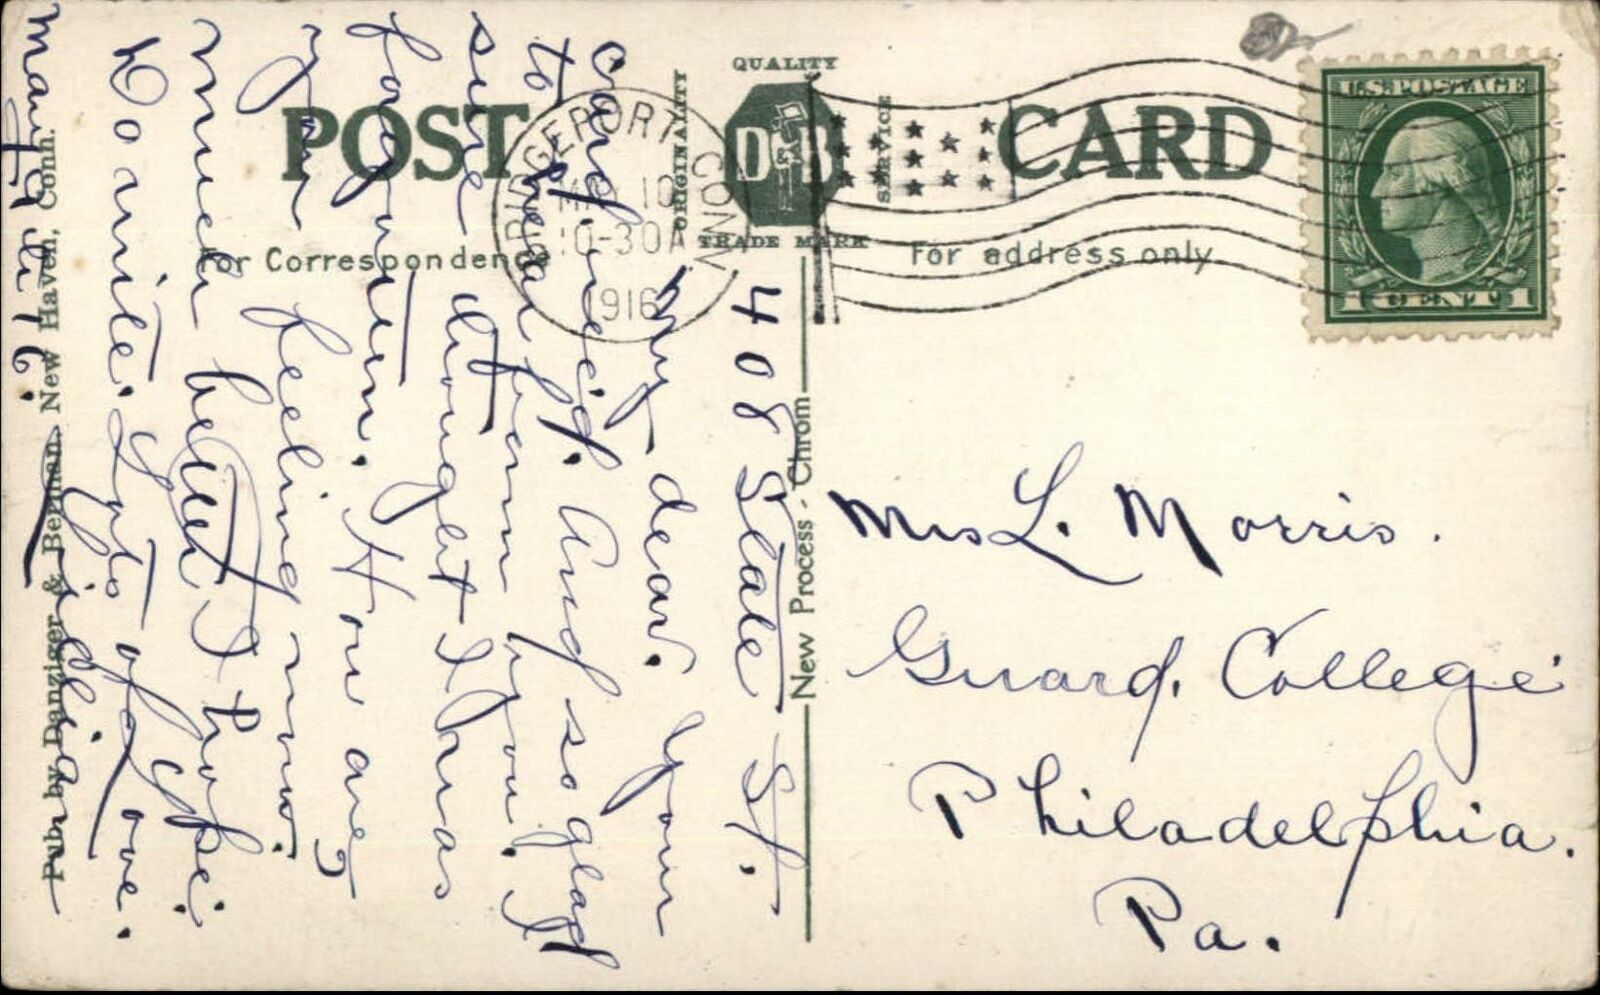 POST CARD
QUALITY
ORIGINALITY
SERVICE
TRADE MARK
D & B
For Correspondence
For address only
BRIDGEPORT CONN
MAY 10
10-30A
1916
U.S. POSTAGE
1 CENT 1
New Process - Chrom
Pub. by Danziger & Berman, New Haven, Conn.
408 State St.
My dear. Your
card rec'd. And so glad
to hear from you. I
sure thought I was
forgotten. How are,
you feeling now.
much better I hope.
Do write. Lots of Love.
Lydia
May 9th 16.
Mrs L. Morris.
Guard. College
Philadelphia.
Pa.